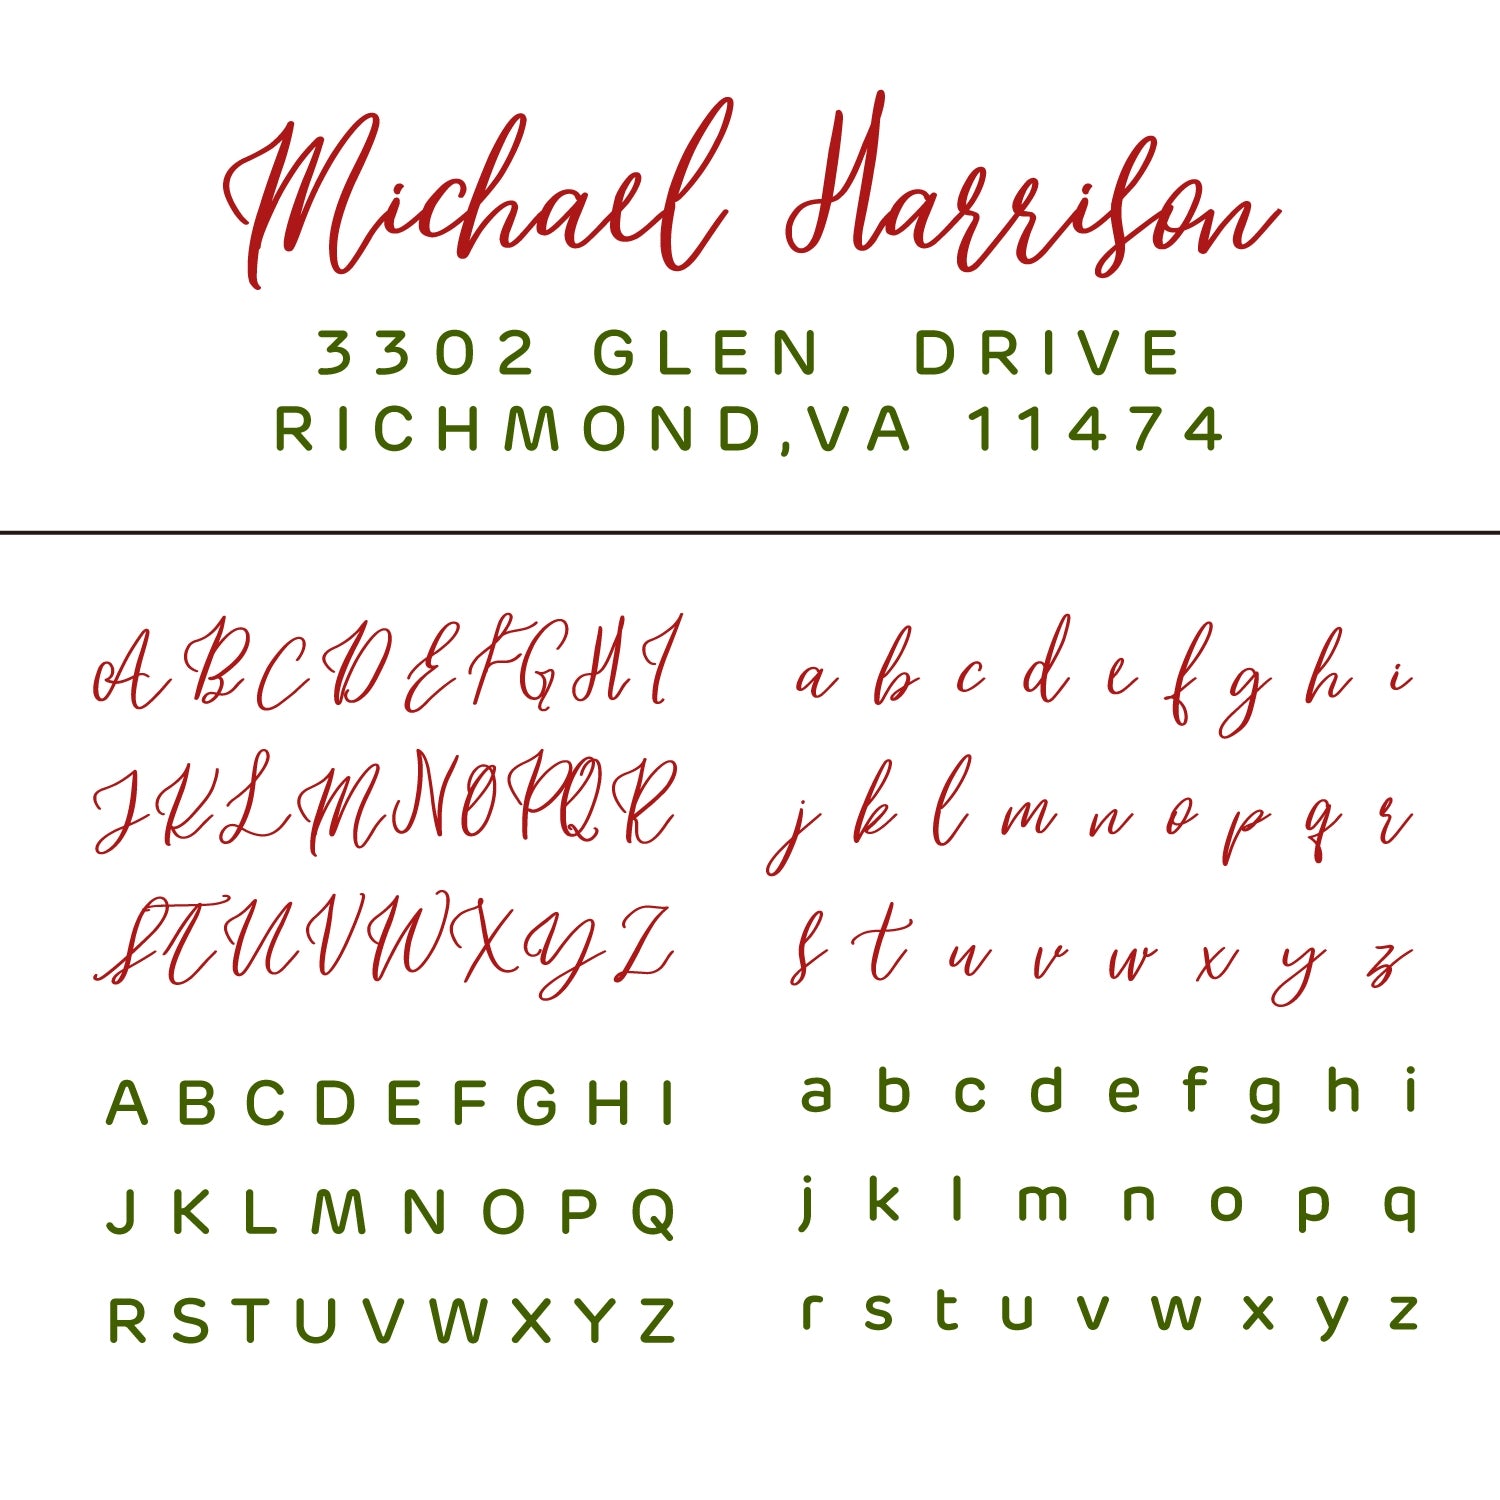 Michael Harrison
3302 GLEN DRIVE
RICHMOND,VA 11474
A B C D E F G H I
J K L M N O P Q R
S T U V W X Y Z
a b c d e f g h i
j k l m n o p q r
s t u v w x y z
A B C D E F G H I
J K L M N O P Q
R S T U V W X Y Z
a b c d e f g h i
j k l m n o p q
r s t u v w x y z